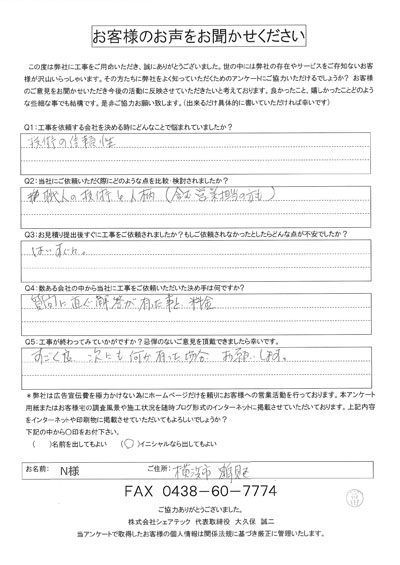 お客様のお声をお聞かせください
この度は弊社に工事をご用命いただき、誠にありがとうございました。世の中には弊社の存在やサービスをご存知ないお客
様が沢山いらっしゃいます。その方たちに弊社をよく知っていただくためのアンケートにご協力いただけるでしょうか? お客様
のご意見をお聞かせいただき今後の活動に反映させていただきたいと考えております。良かったこと、嬉しかったことどのよう
な些細な事でも結構です。是非ご協力お願い致します。(出来るだけ具体的に書いていただければ幸いです)
Q1:工事を依頼する会社を決める時にどんなことで悩まれていましたか?
技術の信頼性
Q2:当社にご依頼いただく際にどのような点を比較・検討されましたか?
職人の技術と人柄(含む営業担当の方も)
Q3:お見積り提出後すぐに工事をご依頼されましたか?もしご依頼されなかったとしたらどんな点が不安でしたか?
はい すぐに。
Q4:数ある会社の中から当社に工事をご依頼いただいた決め手は何ですか?
質問に直ぐ解答が有った事と料金
Q5:工事が終わってみていかがですか?忌憚のないご意見を頂戴できましたら幸いです。
すごく良 次にも何か有った場合 お願いします。
*弊社は広告宣伝費を極力かけない為にホームページだけを頼りにお客様への営業活動を行っております。本アンケート
用紙またはお客様宅の調査風景や施工状況を随時ブログ形式のインターネットに掲載させていただいております。上記内容
をインターネットや印刷物に掲載させていただいてもよろしいでしょうか?
下記の中から○印をお付下さい。
( )名前を出してもよい (○)イニシャルなら出してもよい
お名前: N様 ご住所: 横浜市 鶴見区
FAX 0438-60-7774
ご協力ありがとうございました。
株式会社シェアテック 代表取締役 大久保 誠二
当アンケートで取得したお客様の個人情報は関係法規に基づき厳正に管理いたします。